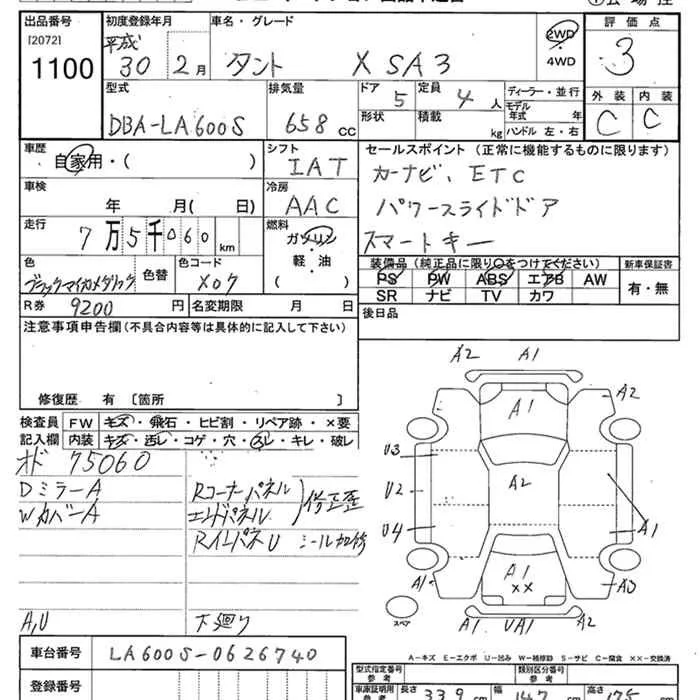 出品番号 初度登録年月 車名・グレード 評価点
[2072] 平成
1100 30年 2月 タント X SA3 2WD 3
4WD
型式 排気量 ドア 5 定員 4人 ディーラー・並行 外装 内装
DBA-LA600S 658 CC 形状 積載 kg モデル年式 年 C C
ハンドル 左・右
車歴 シフト セールスポイント (正常に機能するものに限ります)
自家用・( ) IAT カーナビ、ETC
車検 冷房
年 月( 日) AAC パワースライドドア
走行 燃料
7万5千060km ガソリン スマートキー
色 色替 色コード 軽・油 装備品 (純正品に限り○をつけてください) 新車保証書
ブラックマイカメタリック X07 ( ) PS PW ABS エアB AW 有・無
R券 9200円 名変期限 月 日 SR ナビ TV カワ
注意事項申告欄(不具合内容等は具体的に記入して下さい) 後日品
修復歴 有 〔箇所 〕
検査員 FW キズ・飛石・ヒビ割・リペア跡・×要
記入欄 内装 キズ・汚レ・コゲ・穴・スレ・キレ・破レ
オド 75060
Dミラー A Rコーナーパネル
Wカバー A エンドパネル 修正歪
RインパネU シール加修
A,U 下廻り
A2 A1
A1 A2
U3
U2 A2
U4 A1
A1 A1 XX A3
スペア A1 UA1 A2
車台番号 LA600S-0626740 A-キズ E-エクボ U-凹み W-補修跡 S-サビ C-腐食 XX-交換済
登録番号 型式指定番号 参考 類別区分番号 参考
車庫証明用 参考 長さ 339 cm 幅 147 cm 高さ 175 cm